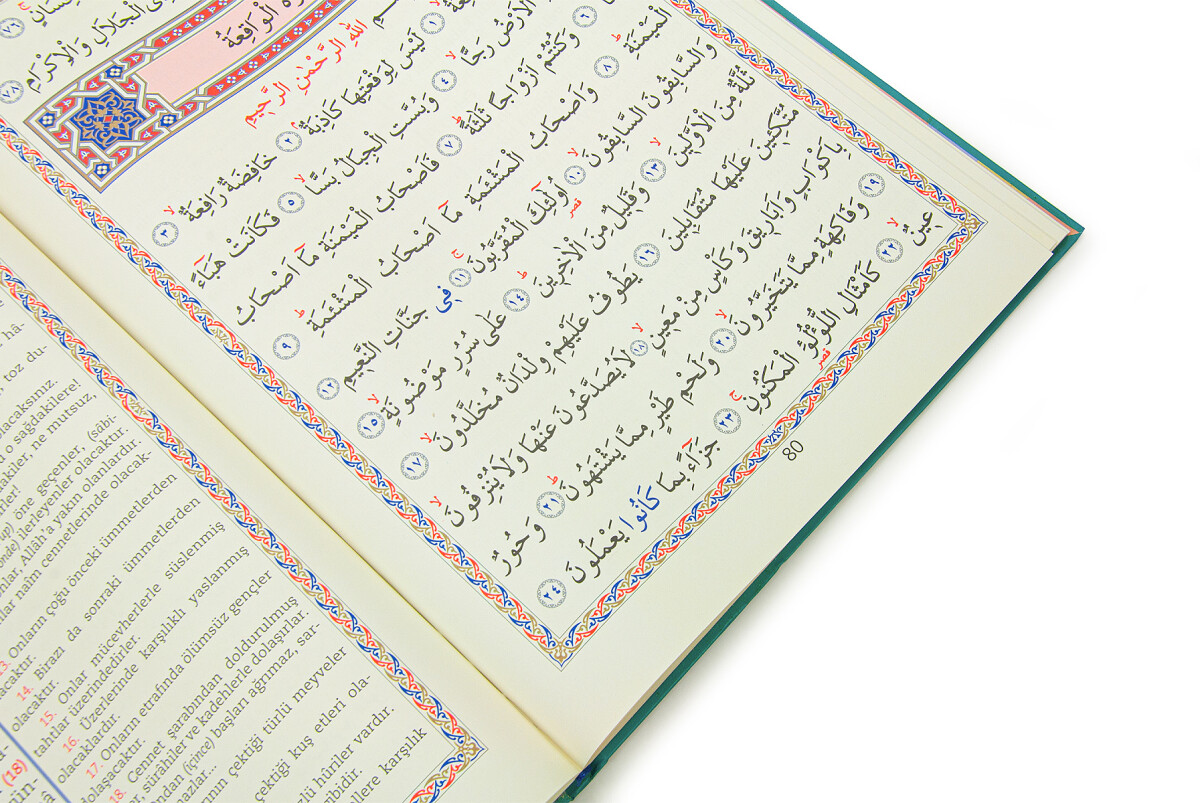 ذِى الْجَلَالِ وَالْاِكْرَامِ ٧٨
الْوَاقِعَةُ
اللّٰهِ الرَّحْمٰنِ الرَّحِيمِ
١ لَيْسَ لِوَقْعَتِهَا كَاذِبَةٌ ٢ خَافِضَةٌ رَافِعَةٌ ٣
الْاَرْضُ رَجًّا ٤ وَبُسَّتِ الْجِبَالُ بَسًّا ٥ فَكَانَتْ هَبَآءً
٦ وَكُنْتُمْ اَزْوَاجًا ثَلٰثَةً ٧ فَاَصْحَابُ الْمَيْمَنَةِ مَآ اَصْحَابُ
الْمَيْمَنَةِ ٨ وَاَصْحَابُ الْمَشْئَمَةِ مَآ اَصْحَابُ الْمَشْئَمَةِ ٩
وَالسَّابِقُونَ السَّابِقُونَ ١٠ اُولٰٓئِكَ الْمُقَرَّبُونَ ١١ فِى جَنَّاتِ النَّعِيمِ ١٢
ثُلَّةٌ مِنَ الْاَوَّلِينَ ١٣ وَقَلِيلٌ مِنَ الْاٰخِرِينَ ١٤ عَلٰى سُرُرٍ مَوْضُونَةٍ ١٥
مُتَّكِئِينَ عَلَيْهَا مُتَقَابِلِينَ ١٦ يَطُوفُ عَلَيْهِمْ وِلْدَانٌ مُخَلَّدُونَ ١٧
بِاَكْوَابٍ وَاَبَارِيقَ وَكَاْسٍ مِنْ مَعِينٍ ١٨ لَا يُصَدَّعُونَ عَنْهَا وَلَا يُنْزِفُونَ
١٩ وَفَاكِهَةٍ مِمَّا يَتَخَيَّرُونَ ٢٠ وَلَحْمِ طَيْرٍ مِمَّا يَشْتَهُونَ ٢١ وَحُورٌ
عِينٌ ٢٢ كَاَمْثَالِ اللُّؤْلُؤِ الْمَكْنُونِ ٢٣ جَزَآءً بِمَا كَانُوا يَعْمَلُونَ ٢٤
80
hâ-
toz du-
olacaksınız.
o sağdakilere!
ne mutsuz,
öne geçenler, (sâbir
ilerleyenler olacaktır
Allâh'a yakın olanlardır.
naîm cennetlerinde olacak-
13. Onların çoğu önceki ümmetlerden
olacaktır.
14. Birazı da sonraki ümmetlerden
olacaktır.
15. Onlar mücevherlerle süslenmiş
tahtlar üzerindedirler.
16. Üzerlerinde karşılıklı yaslanmış
olacaklardır.
17. Onların etrafında ölümsüz gençler
dolaşacaktır.
18. Cennet şarabından doldurulmuş
sürâhiler ve kadehlerle dolaşırlar.
(içince) başları ağrımaz, sar-
çektiği türlü meyveler
çektiği kuş etleri ola-
hûriler vardır.
karşılık
(18)